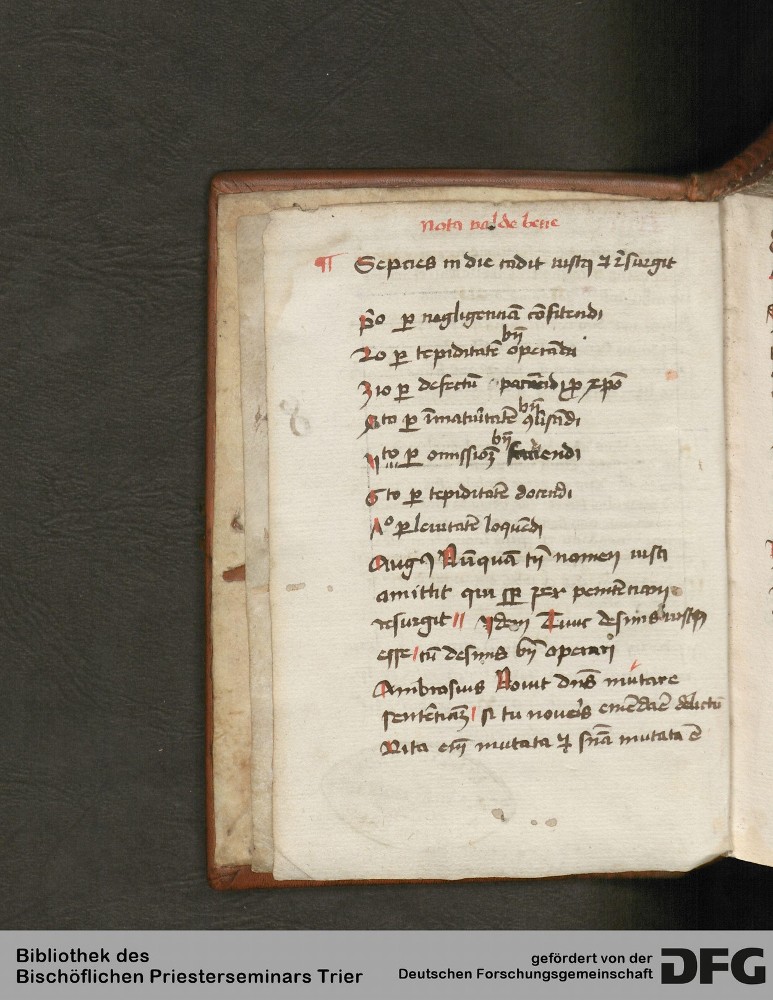 Nota valde bene
¶ Septies in die cadit iustꝯ ⁊ r̄surgit
p̄o ꝑ negligenciā cōfitendi
2o ꝑ tepiditatē bn̄ operādi
3io ꝑ defectū
4to ꝑ bn̄
5to ꝑ omissioꝫ bn̄ faciendi
6to ꝑ tepiditatē docendi
7o ꝑ leuitatē loquēdi
Augꝯ Nūquā tn̄ nomen iusti
amittit qui sꝑ per penitenciam
resurgit // Idem Tunc desinis iustꝰ
esse / cū desinis bn̄ operari
Ambrosius Nouit dn̄s mutare
sentenciaꝫ / si tu noueris emēdare delictū
Vita em̄ mutata ⁊ sn̄ia mutata ē
8
Bibliothek des
Bischöflichen Priesterseminars Trier
gefördert von der
Deutschen Forschungsgemeinschaft
DFG